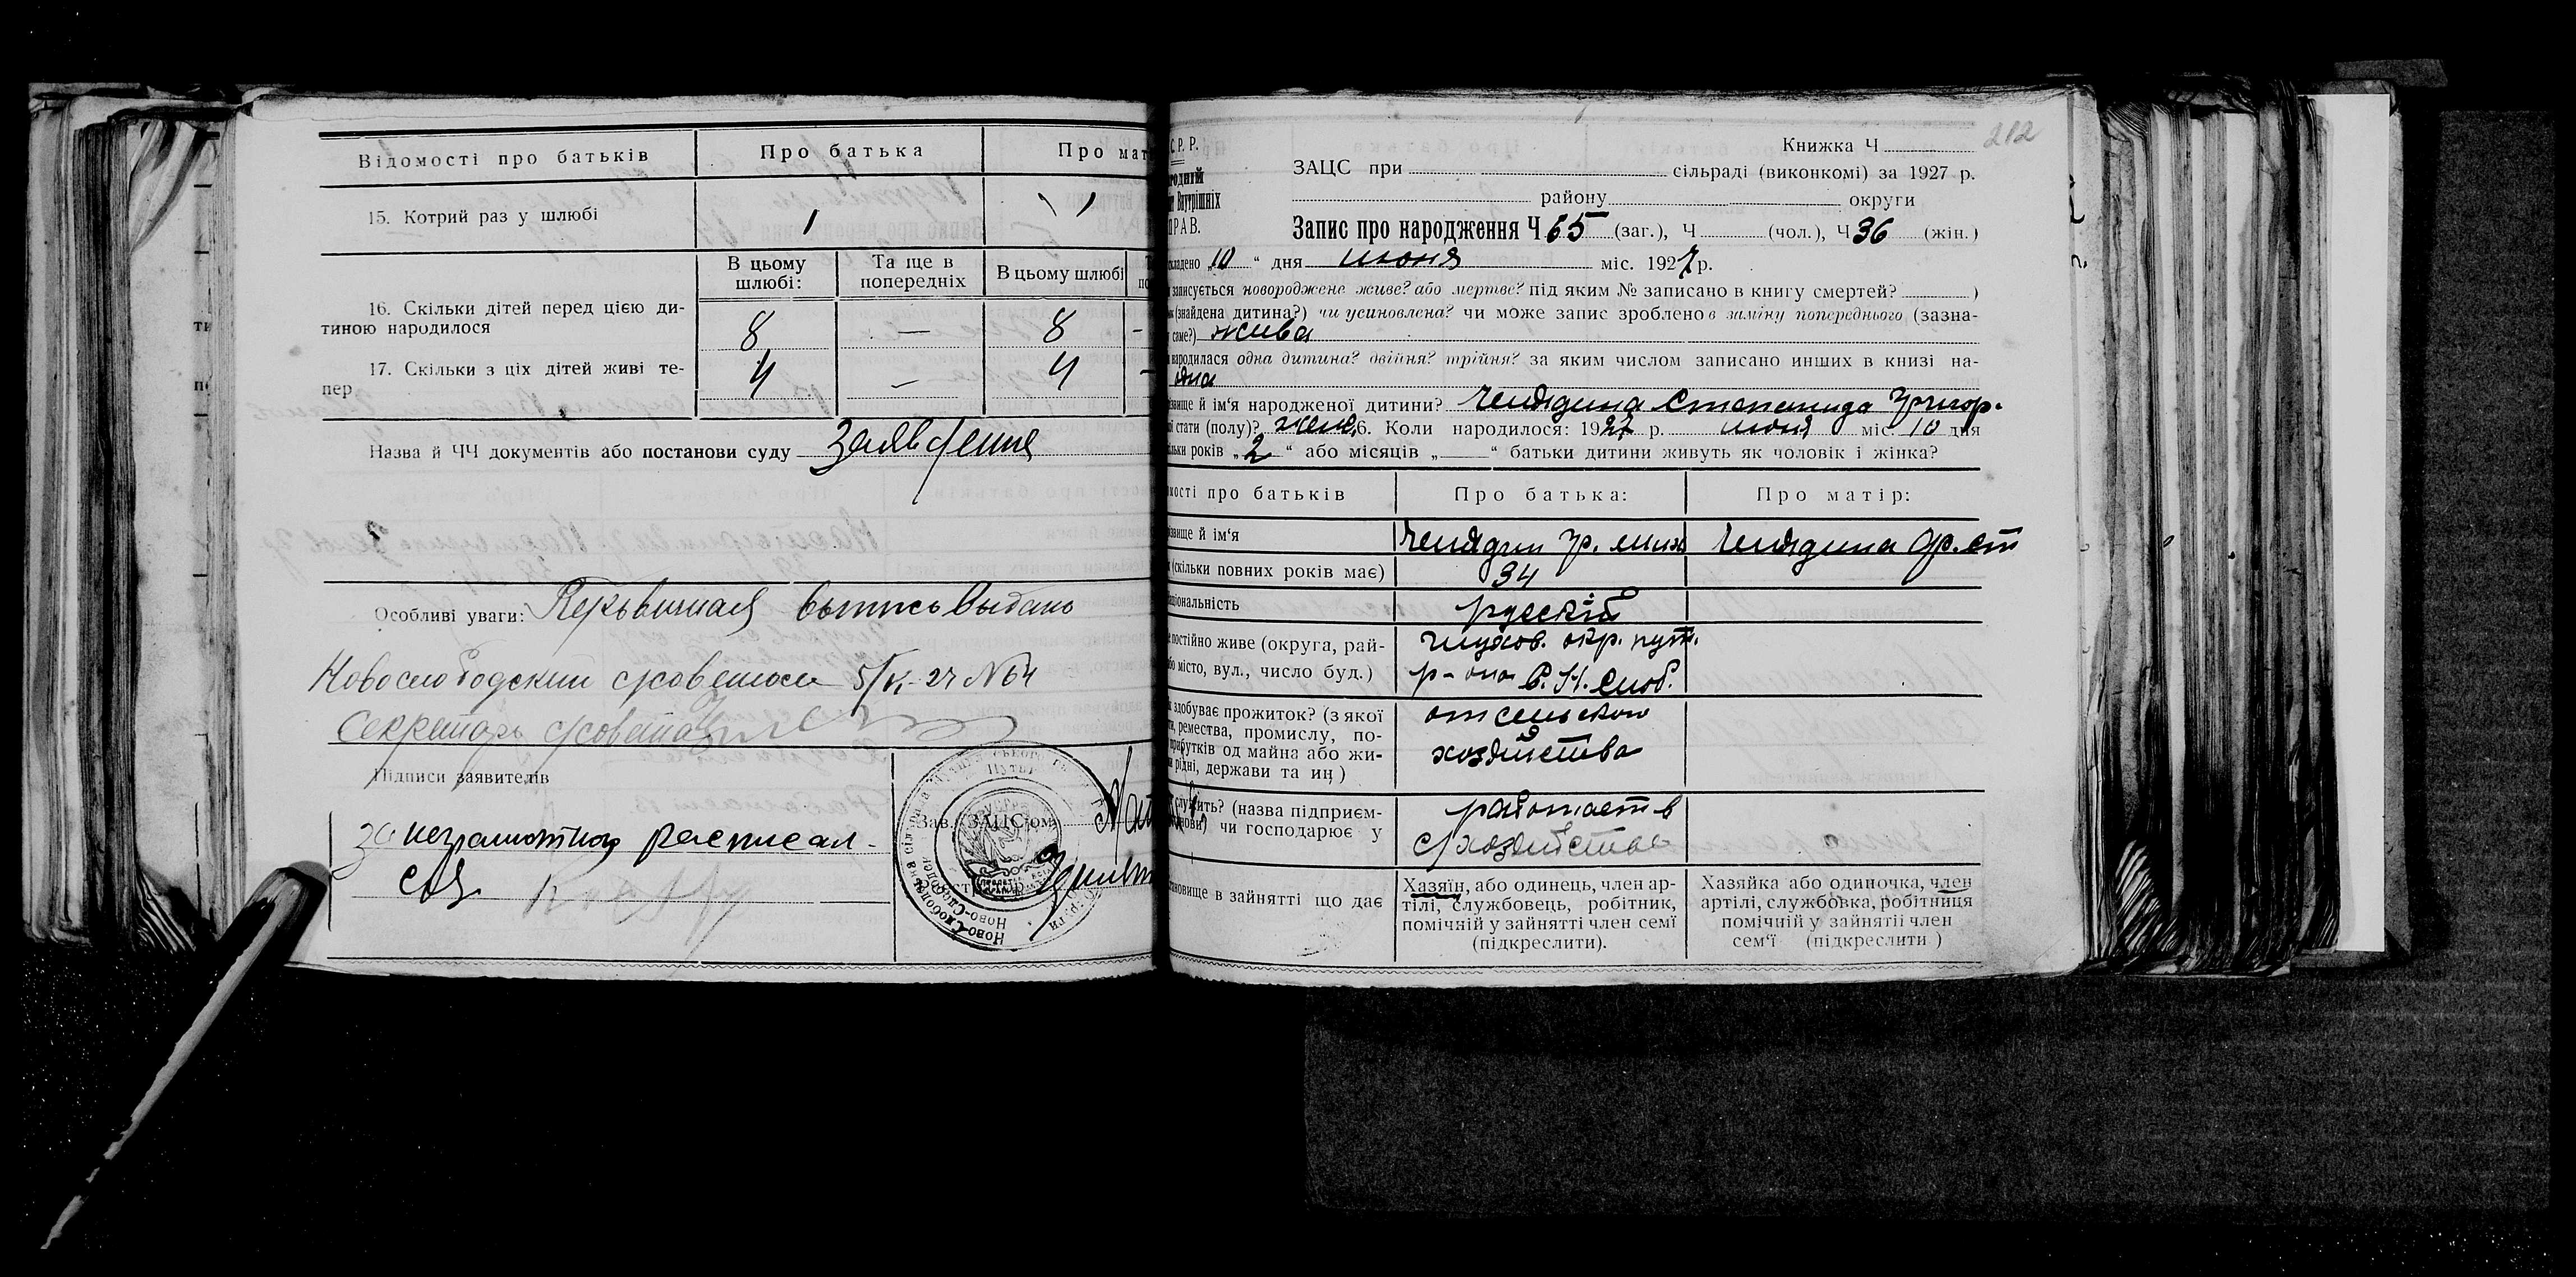 Відомості про батьків
Про батька
Про мат
15. Котрий раз у шлюбі
1
1
В цьому шлюбі:
Та ще в попередніх
В цьому шлюбі
16. Скільки дітей перед цією ди-
тиною народилося
8
—
8
-
17. Скільки з ціх дітей живі те-
пер
4
—
4
-
Назва й ЧЧ документів або постанови суду заявление
Особливі уваги: Первичная выпись выдана
Новослободским с/советом 5/VI-27 №64
Секретарь с/совета
Підписи заявителів
за неграмотную расписал-
ся
Зав. ЗАЦС'ом
212
С.Р.Р.
Книжка Ч
ЗАЦС при сільраді (виконкомі) за 1927 р.
Внутрішніх
району округи
ПРАВ.
Запис про народження Ч 65 (заг.), Ч (чол.), Ч 36 (жін.)
кладено „10“ дня июня міс. 1927 р.
записується новороджене живе? або мертве? під яким № записано в книгу смертей? )
(знайдена дитина?) чи усиновлена? чи може запис зроблено в заміну попереднього (зазна-
саме?) жива
народилася одна дитина? двійня? трійня? за яким числом записано инших в книзі на-
одна
звище й ім'я народженої дитини? Челядина Степанида Григор.
стати (полу)? жен. 6. Коли народилося: 1927 р. июня міс. 10 дня
льки років „2“ або місяців „ “ батьки дитини живуть як чоловік і жінка?
мості про батьків
Про батька:
Про матір:
звище й ім'я
Челядин Гр. Мих
Челядина Фр. Ст
(скільки повних років має)
34
ціональність
русский
постійно живе (округа, рай-
або місто, вул., число буд.)
Глухов. окр. пут.
р-она С. Н. Слоб.
здобуває прожиток? (з якої
ремества, промислу, по-
прибутків од майна або жи-
рідні, держави та ин)
от сельского
хозяйства
служить? (назва підприєм-
чи господарює у
работает в
с/хозяйстве
становище в зайнятті що дає
Хазяїн, або одинець, член ар-
тілі, службовець, робітник,
помічній у зайнятті член семї
(підкреслити).
Хазяйка або одиночка, член
артілі, службовка, робітниця
помічній у зайнятіі член
сем'ї (підкреслити )